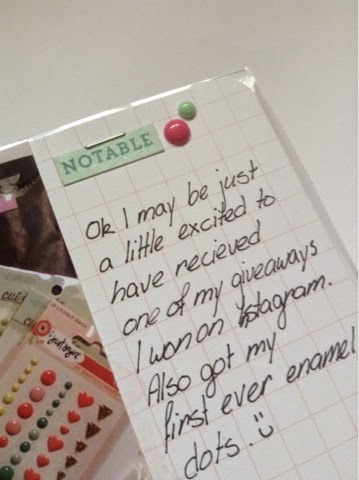 NOTABLE
Ok I may be just
a little excited to
have recieved
one of my giveaways
I won on Instagram.
Also got my
first ever enamel
dots.